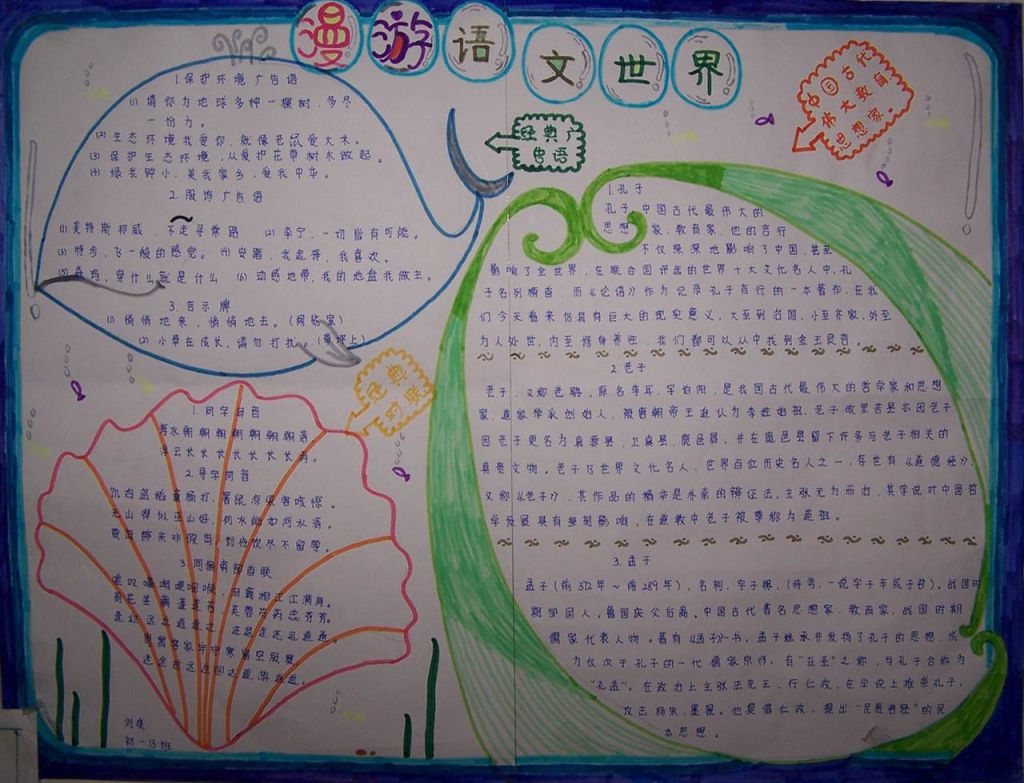 漫游语文世界
经典广告语
1.保护环境广告语
(1) 请你为地球多种一棵树,多尽
一份力。
(2) 生态环境我爱你,就像老鼠爱大米。
(3) 保护生态环境,从爱护花草树木做起。
(4) 绿我钟小,美我家乡,爱我中华。
2.服饰广告语
(1) 美特斯邦威,不走寻常路 (2) 李宁,一切皆有可能。
(3) 特步,飞一般的感觉。 (4) 安踏,我选择,我喜欢。
穿什么就是什么 (6) 动感地带,我的地盘我做主。
3.告示牌
(1) 悄悄地来,悄悄地去。(阅览室)
(2) 小草在成长,请勿打扰。(草坪上)
经典对联
1.同字同音
海水朝朝朝朝朝朝朝落
浮云长长长长长长长消。
2.异字同音
饥鸡盗稻童筒打,暑鼠凉梁客咳惊。
无山得似巫山好,何水能如河水清。
贾岛醉来非假倒,刘伶饮尽不留零。
3.同偏旁部首联
荷花茎藕蓬莲苔,芙蓉芍药蕊芬芳。
寄寓客家牢守寒窗空寂寞
中国古代
伟大教育
思想家。
1.孔子
孔子,中国古代最伟大的
思想家、教育家,他的言行
不仅深深地影响了中国,甚至
影响了全世界,在联合国评出的世界十大文化名人中,孔
子名列榜首,而《论语》作为记录孔子言行的一本著作,在我
们今天看来仍具有巨大的现实意义,大至到治国,小至齐家,外至
为人处世,内至修身养性,我们都可以从中找到金玉良言。
2.老子
老子,又称老聃,原名李耳,字伯阳,是我国古代最伟大的哲学家和思想
家,道家学派创始人,被唐朝帝王追认为李姓始祖。老子故里苦县亦因老子
因老子更名为真源县、卫真县、鹿邑县,并在鹿邑县留下许多与老子相关的
真贵文物。老子乃世界文化名人,世界百位历史名人之一,存世有《道德经》,
又称《老子》,其作品的精华是朴素的辩证法,主张无为而治,其学说对中国哲
学发展具有深刻影响,在道教中老子被尊称为道祖。
3.孟子
孟子(前372年~前289年),名轲,字子舆,(待考,一说字子车或子居)。战国时
期邹国人,鲁国庆父后裔。中国古代著名思想家、教育家,战国时期
儒家代表人物。著有《孟子》一书,孟子继承并发扬了孔子的思想,成
为仅次于孔子的一代儒家宗师,有"亚圣"之称,与孔子合称为
"孔孟"。在政治上主张法先王、行仁政,在学说上推崇孔子,
攻击杨朱、墨翟。他提倡仁政,提出"民贵君轻"的民
本思想。
初一13班